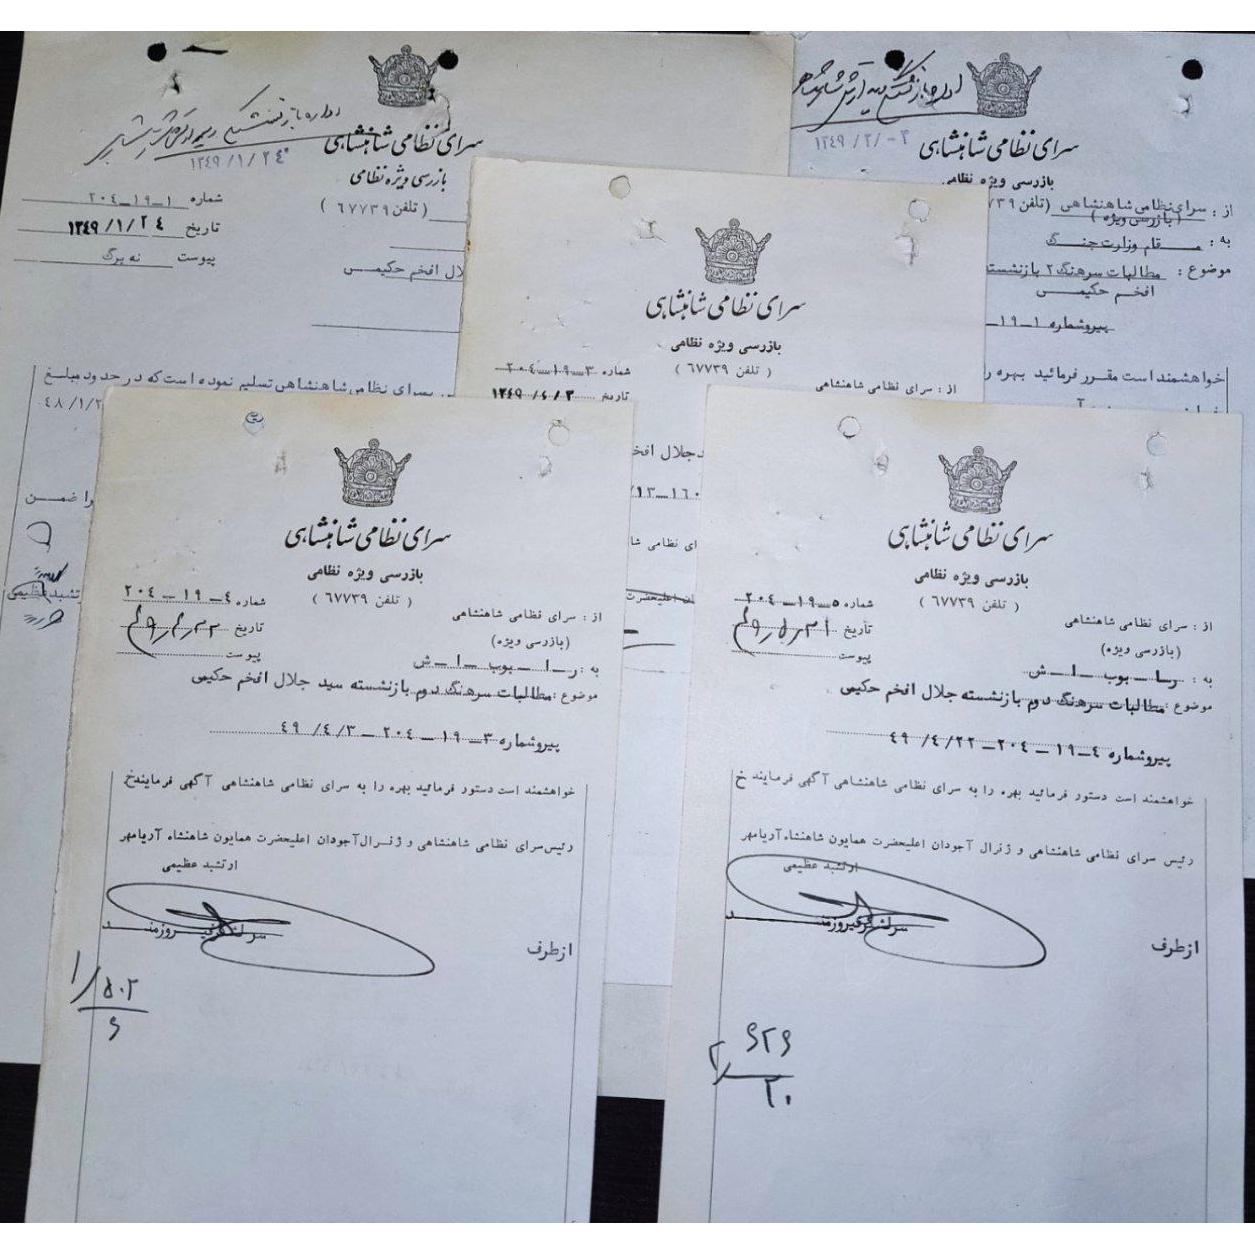 سرای نظامی شاهنشاهی
بازرسی ویژه نظامی
( تلفن ۶۷۷۳۹ )
شماره ۱_۱۹_۲۰۴
تاریخ ۱۳۴۹/۱/۲۴
پیوست نه برگ
۱۳۴۹/۱/۲۴
لال افخم حکیمی
بسرای نظامی شاهنشاهی تسلیم نموده است که در حدود مبلغ
را ضمن
سرای نظامی شاهنشاهی
بازرسی ویژه نظامی
از : سرای نظامی شاهنشاهی (تلفن
( بازرسی ویژه )
به : قام وزارت جنگ
موضوع : مطالبات سرهنگ ۲ بازنشسته
افخم حکیمی
پیروشماره ۱_۱۹_
خواهشمند است مقرر فرمائید بهره
سرای نظامی شاهنشاهی
بازرسی ویژه نظامی
( تلفن ۶۷۷۳۹ )
شماره ۳_۱۹_۲۰۴
تاریخ ۱۳۴۹/۴/۳
از : سرای نظامی شاهنشاهی
جلال افخ
ای نظامی شا
سرای نظامی شاهنشاهی
بازرسی ویژه نظامی
( تلفن ۶۷۷۳۹ )
شماره ۴_۱۹_۲۰۴
از : سرای نظامی شاهنشاهی
(بازرسی ویژه)
تاریخ ۴۹/۴/۲۲
پیوست
به : ر_ا_بوب_ا_ش
موضوع : مطالبات سرهنگ دوم بازنشسته سید جلال افخم حکیمی
پیروشماره ۳_۱۹_۲۰۴_۴۹/۴/۳
خواهشمند است دستور فرمائید بهره را به سرای نظامی شاهنشاهی آگهی فرمایند خ
رئیس سرای نظامی شاهنشاهی و ژنرال آجودان اعلیحضرت همایون شاهنشاه آریامهر
ارتشبد عظیمی
سرلشگر فیروزمند
از طرف
سرای نظامی شاهنشاهی
بازرسی ویژه نظامی
( تلفن ۶۷۷۳۹ )
شماره ۵_۱۹_۲۰۴
از : سرای نظامی شاهنشاهی
(بازرسی ویژه)
تاریخ ۴۹/۵/۳۱
پیوست
به : ر_ا_بوب_ا_ش
موضوع : مطالبات سرهنگ دوم بازنشسته جلال افخم حکیمی
پیروشماره ۴_۱۹_۲۰۴_۴۹/۴/۲۲
خواهشمند است دستور فرمائید بهره را به سرای نظامی شاهنشاهی آگهی فرمایند خ
رئیس سرای نظامی شاهنشاهی و ژنرال آجودان اعلیحضرت همایون شاهنشاه آریامهر
ارتشبد عظیمی
سرلشگر فیروزمند
از طرف